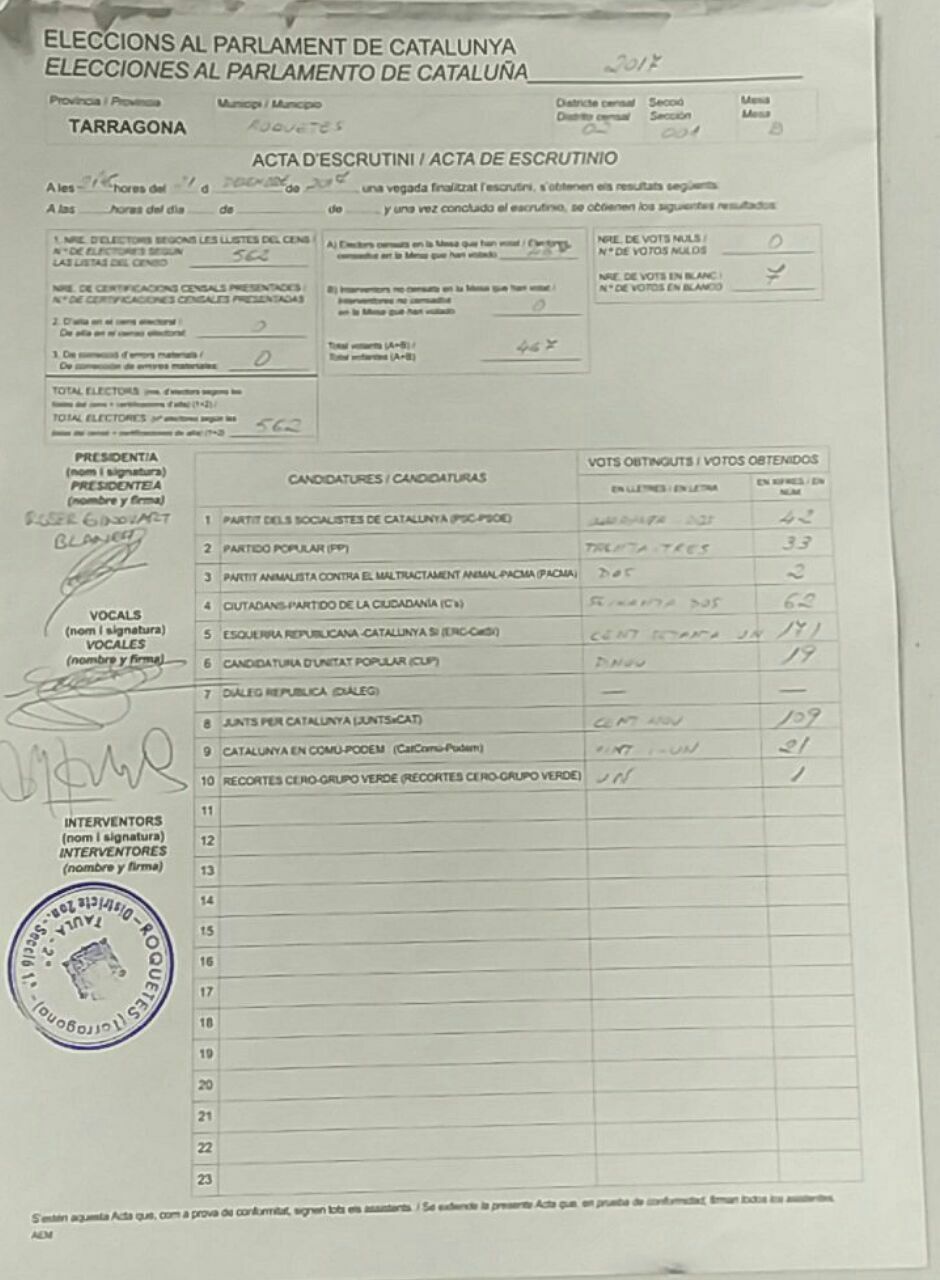 ELECCIONS AL PARLAMENT DE CATALUNYA
ELECCIONES AL PARLAMENTO DE CATALUÑA 2017
Província / Provincia
TARRAGONA
Municipi / Municipio
ROQUETES
Districte censal
Distrito censal
02
Secció
Sección
001
Mesa
Mesa
B
ACTA D'ESCRUTINI / ACTA DE ESCRUTINIO
A les hores del 21 d DESEMBRE de 2017, una vegada finalitzat l'escrutini, s'obtenen els resultats següents:
A las horas del día de de y una vez concluido el escrutinio, se obtienen los siguientes resultados:
1. NRE. D'ELECTORS SEGONS LES LLISTES DEL CENS /
N.º DE ELECTORES SEGÚN
LAS LISTAS DEL CENSO 562
NRE. DE CERTIFICACIONS CENSALS PRESENTADES /
N.º DE CERTIFICACIONES CENSALES PRESENTADAS
2. D'alta en el cens electoral /
De alta en el censo electoral: 0
3. De correcció d'errors materials /
De corrección de errores materiales: 0
TOTAL ELECTORS (nre. d'electors segons les
llistes del cens + certificacions d'alta) (1+2) /
TOTAL ELECTORES (nº electores según las
listas del censo + certificaciones de alta) (1+2) 562
A) Electors censats en la Mesa que han votat / Electores
censados en la Mesa que han votado
B) Interventors no censats en la Mesa que han votat /
Interventores no censados
en la Mesa que han votado 0
Total votants (A+B) /
Total votantes (A+B) 467
NRE. DE VOTS NULS /
N.º DE VOTOS NULOS 0
NRE. DE VOTS EN BLANC /
N.º DE VOTOS EN BLANCO 7
PRESIDENT/A
(nom i signatura)
PRESIDENTE/A
(nombre y firma)
ROGER GINOVART
BLANCH
VOCALS
(nom i signatura)
VOCALES
(nombre y firma)
INTERVENTORS
(nom i signatura)
INTERVENTORES
(nombre y firma)
ROQUETES (Tarragona) - Districte 2on. - Secció 1ª.
TAULA - 2ª
CANDIDATURES / CANDIDATURAS
VOTS OBTINGUTS / VOTOS OBTENIDOS
EN LLETRES / EN LETRA
EN XIFRES / EN NÚM
1 PARTIT DELS SOCIALISTES DE CATALUNYA (PSC-PSOE) QUARANTA DOS 42
2 PARTIDO POPULAR (PP) TRENTA-TRES 33
3 PARTIT ANIMALISTA CONTRA EL MALTRACTAMENT ANIMAL-PACMA (PACMA) DOS 2
4 CIUTADANS-PARTIDO DE LA CIUDADANÍA (C's) SEIXANTA DOS 62
5 ESQUERRA REPUBLICANA -CATALUNYA SÍ (ERC-CatSí) CENT SETANTA UN 171
6 CANDIDATURA D'UNITAT POPULAR (CUP) DINOU 19
7 DIÀLEG REPÚBLICA (DIÀLEG) — —
8 JUNTS PER CATALUNYA (JUNTSxCAT) CENT NOU 109
9 CATALUNYA EN COMÚ-PODEM (CatComú-Podem) VINT-I-UN 21
10 RECORTES CERO-GRUPO VERDE (RECORTES CERO-GRUPO VERDE) UN 1
11
12
13
14
15
16
17
18
19
20
21
22
23
S'estén aquesta Acta que, com a prova de conformitat, signen tots els assistents. / Se extiende la presente Acta que, en prueba de conformidad, firman todos los asistentes.
AEM